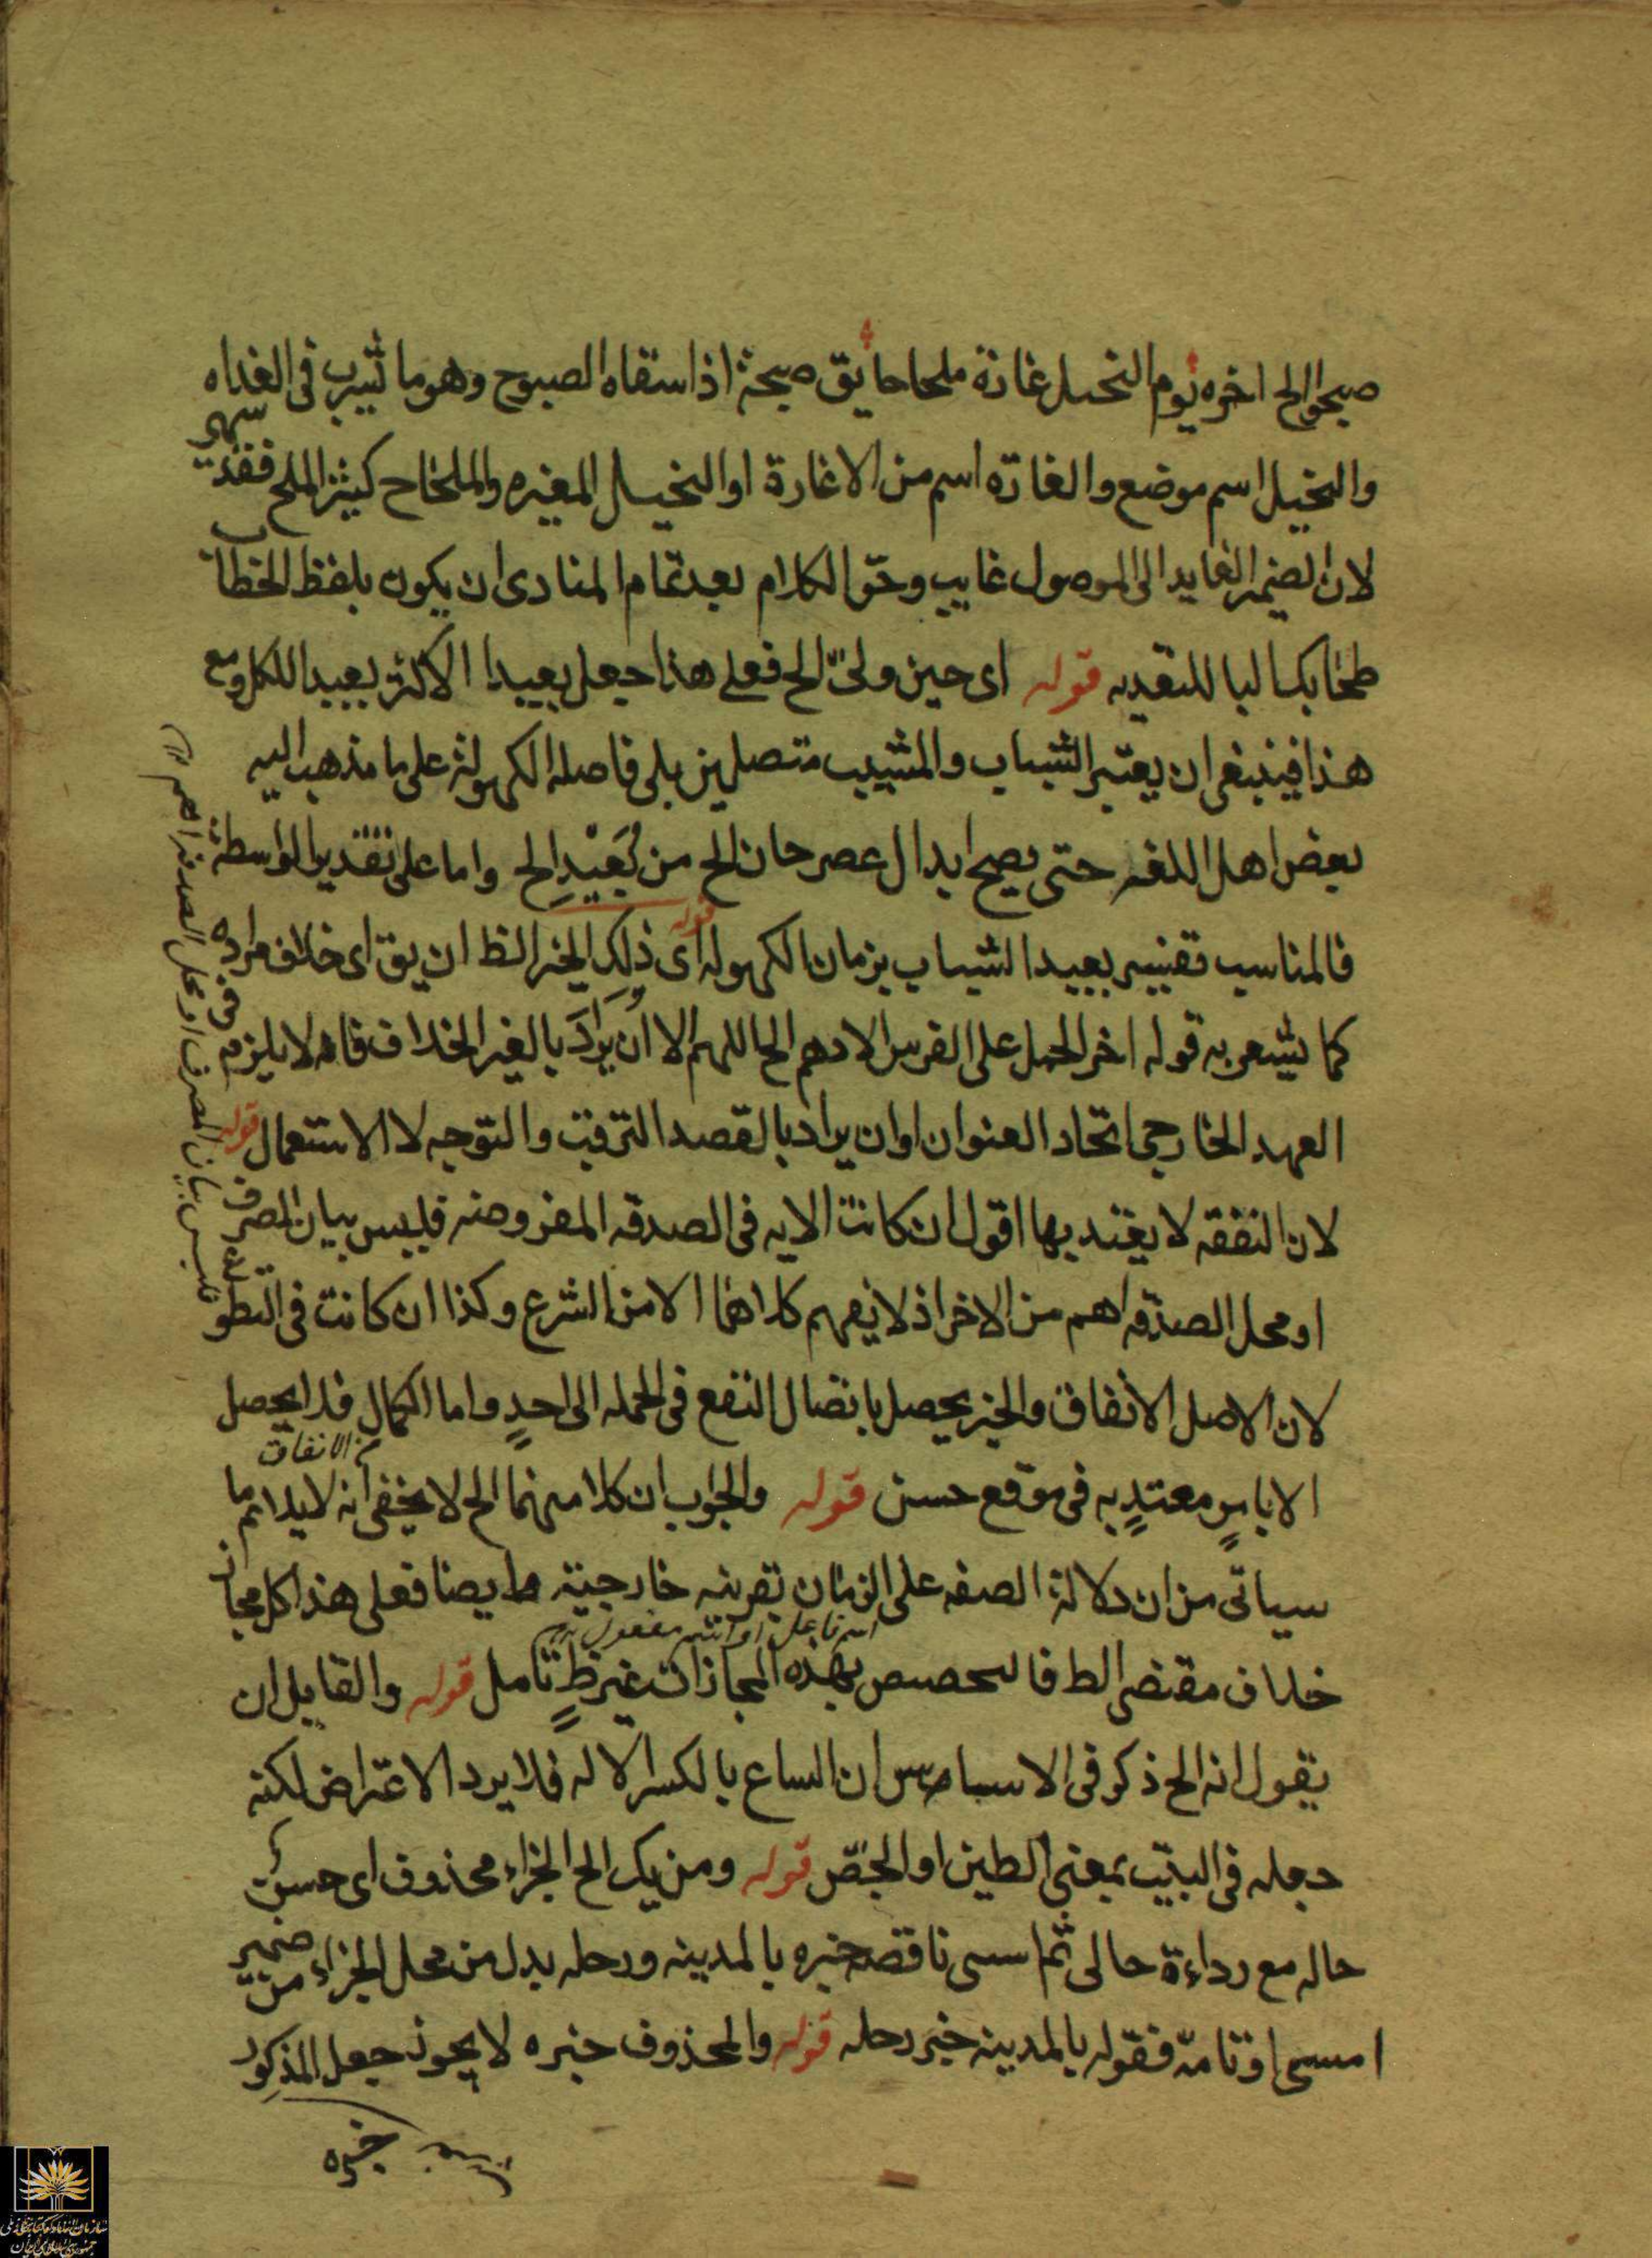 صبحوا الخ اخره يوم النخيل غارة ملحاحا يق صبحة اذا سقاه الصبوح وهو ما يشرب فى الغداه
والنخيل اسم موضع والغارة اسم من الاغارة او النخيل المغيره والملحاح كثير الملح فقد
لان الضمير العايد الى الموصول غايب وحق الكلام بعد تمام المنادى ان يكون بلفظ الخطاب
طحا بك البا للتعديه قوله اى حين ولى الخ فعلى هذا جعل بعيدا الاكثر بعيد الكل ومع
هذا فينبغى ان يعتبر الشباب والمشيب متصلين بلى فاصله الكهولة على ما مذهب اليه
بعض اهل اللغه حتى يصح ابدال عصر حان الخ من بُعَيْدِ الخ واما على تقدير الواسطة
فالمناسب تفسير بعيد الشباب بزمان الكهوله قوله اى ذلك الخير الظ ان يق اى خلاف مراده
كما يشعر به قوله اخر الحمل على الفرس الادهم الخ اللهم الا ان يُرَادَ بالغير الخلاف فانه لا يلزم فى
العهد الخارجى اتحاد العنوان او ان يراد بالقصد الترقب والتوجه لا الاستعمال قوله
لان النفقه لا يعتد بها اقول ان كانت الايه فى الصدقه المفروضه فليس بيان المصرف
او محل الصدقه اهم من الاخر اذ لا يفهم كلاهما الا من الشرع وكذا ان كانت فى التطوع
لان الاصل الانفاق والخير يحصل بايصال النفع فى الجمله الى احدٍ واما الكمال فلا يحصل
من الانفاق
الا بامرٍ معتدٍ به فى موقع حسن قوله والجواب ان كلا منهما الخ لا يخفى انه لا يلايم ما
سياتى من ان دلالة الصفه على الزمان بقرينه خارجيته وايضا فعلى هذا كل مجاز
اسم فاعل او اسم مفعول
خلاف مقتضى الظ فالتخصيص بهذه المجازات غير ظٍ تامل قوله والقايل ان
يقول انه الخ ذكر فى الاساس ان السياع بالكسر الاله فلا يرد الاعتراض لكنه
جعله فى البيت بمعنى الطين او الجص قوله ومن يك الخ الجزاء محذوف اى حسن
حاله مع رداءة حالى ثم امسى ناقصه خبره بالمدينه ورحله بدل من محل الجزاء من ضمير
امسى او تامّه فقوله بالمدينه خبر رحله قوله والمحذوف خبره لا يجوز جعل المذكور
خبره
فليس بيان المصرف او محل الصدقه اهم